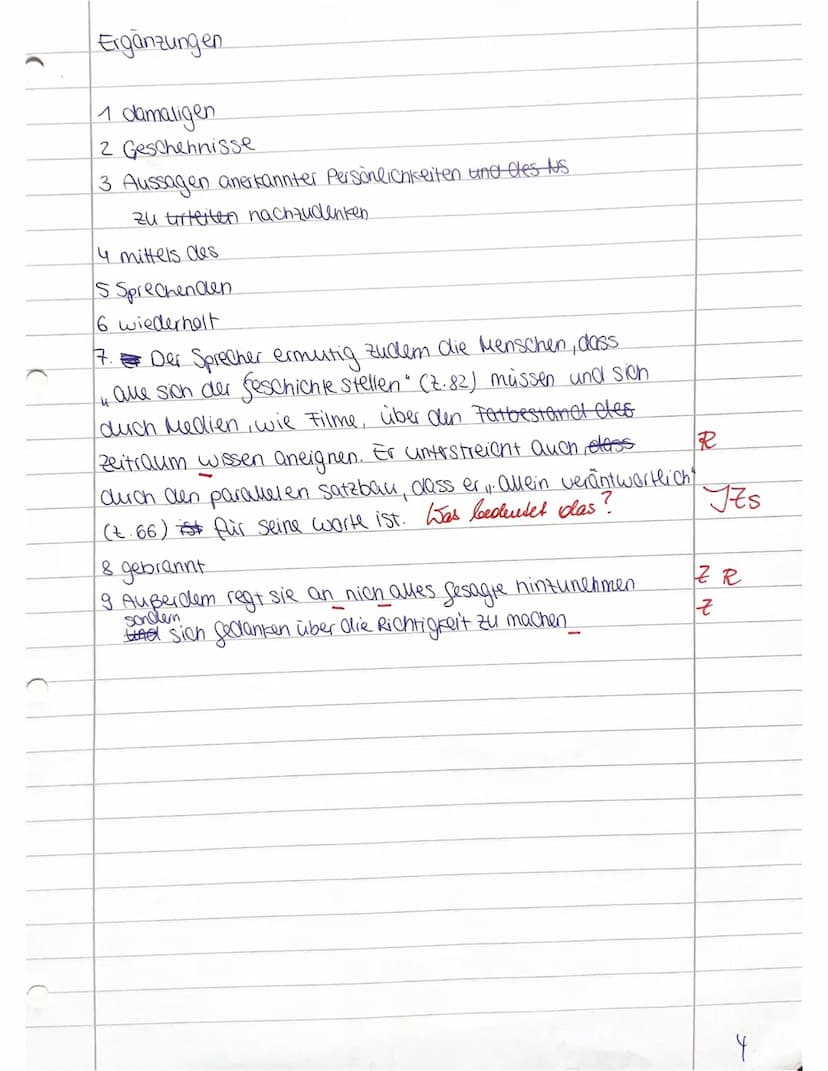 Ergänzungen
1 damaligen
2 Geschehnisse
3 Aussagen anerkannter Persönlichkeiten und des
zu urteilen nachzudenken
4 mittels des
5 Sprechenden
6 wiederholt
7. Der Sprecher ermutig zudem die Menschen, dass
„alle sich der Geschichte stellen“ (Z. 82) müssen und sich
duch Medien, wie Filme, über den Tatbestand des
Zeitraum wissen aneignen. Er unterstreicht auch, dass R
duch den parallelen Satzbau, dass er „allein verantwortlich“
(Z. 66) ist für seine Worte ist. Was bedeutet das? IZs
8 gebrannt
9 Außerdem regt sie an nich alles Gesagte hinzunehmen Z R
sondern
und sich Gedanken über die Richtigkeit zu machen Z
4